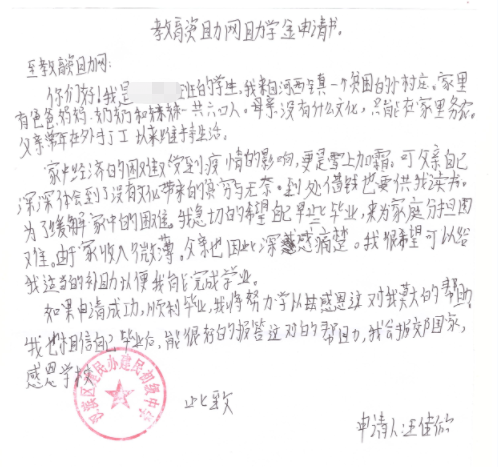 教育资助网助学金申请书.
至教育资助网:
你们好!我是 班的学生,我来自河西乡真一个贫困的小村庄。家里
有爸爸妈妈.奶奶和妹妹一共六口人。母亲没有什么文化,只能在家里务农。
父亲常年在外打工以来维持生活。
家中经济的困难受到疫情的影响,更是雪上加霜。可父亲自己
深深体会到了没有文化带来的贫穷与无奈。到处借钱也要供我读书。
为了缓解家中的困难。我急切的希望自己早些毕业,来为家庭分担困
难。由于家收入微薄。父亲也因此深感痛楚。我很希望可以给
我适当的补助以便我能完成学业。
如果申请成功,顺利毕业,我将努力学以感恩这对我莫大的帮助
我也相信自己毕业后,能很好的报答这对的帮助,我会报效国家,
感恩学校
此致
族区 民办建民初级中学
申请人:汪佳